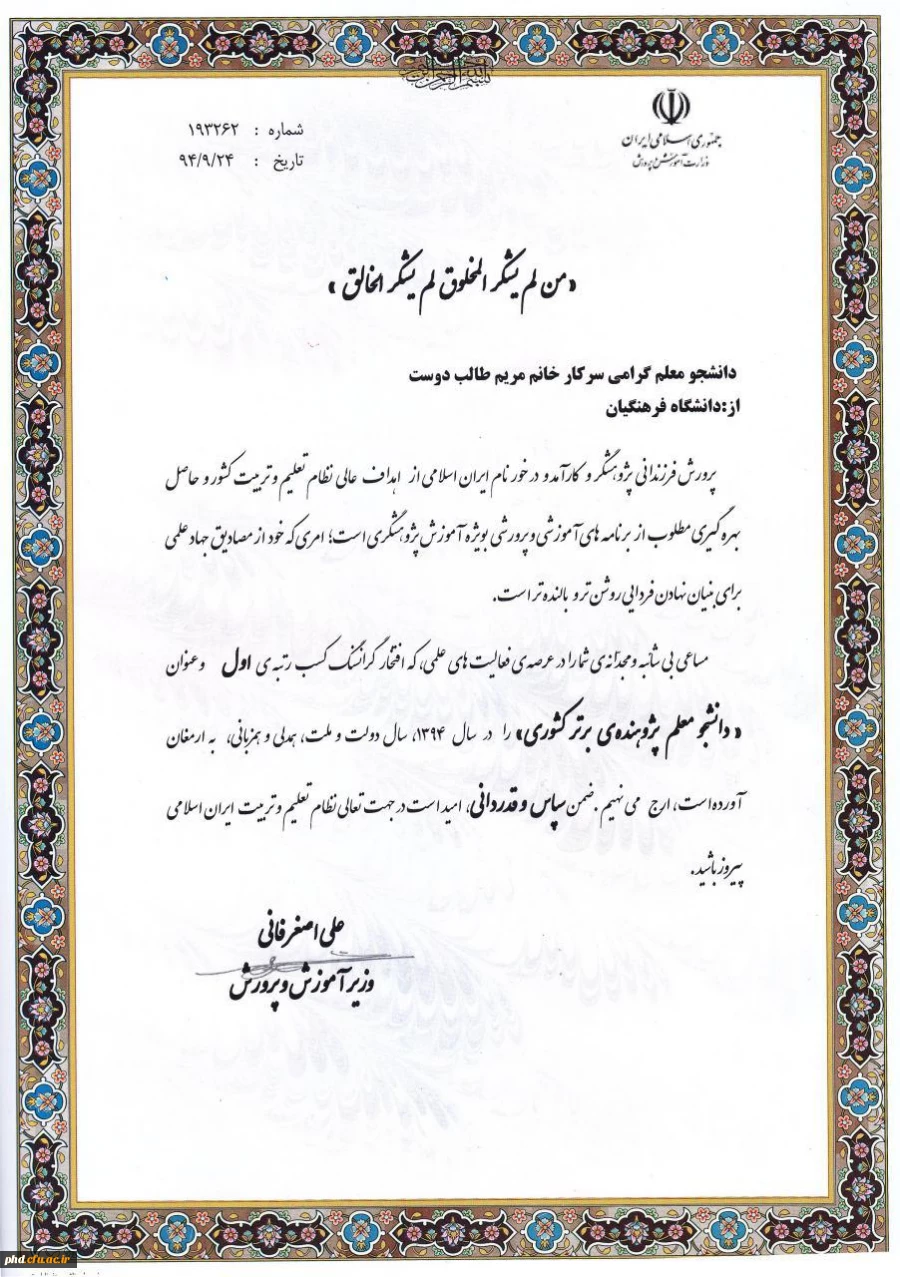 بسم الله الرحمن الرحیم
جمهوری اسلامی ایران
وزارت آموزش و پرورش
شماره : ۱۹۳۲۶۲
تاریخ : ۹۴/۹/۲۴
«من لم یشکر المخلوق لم یشکر الخالق»
دانشجو معلم گرامی سرکار خانم مریم طالب دوست
از:دانشگاه فرهنگیان
پرورش فرزندانی پژوهشگر و کارآمد و در خور نام ایران اسلامی از اهداف عالی نظام تعلیم و تربیت کشور و حاصل
بهره گیری مطلوب از برنامه های آموزشی و پرورشی بویژه آموزش پژوهشگری است؛ امری که خود از مصادیق جهاد علمی
برای بنیان نهادن فردایی روشن تر و بالنده تر است.
مساعی بی شائبه و مجدانه ی شما را در عرصه ی فعالیت های علمی، که افتخار گرانسنگ کسب رتبه ی اول و عنوان
«دانشجو معلم پژوهنده ی برتر کشوری» را در سال ۱۳۹۴، سال دولت و ملت، همدلی و همزبانی، به ارمغان
آورده است، ارج می نهیم. ضمن سپاس و قدردانی، امید است در جهت تعالی نظام تعلیم و تربیت ایران اسلامی
پیروز باشید.
علی اصغر فانی
وزیر آموزش و پرورش
phd.cfu.ac.ir